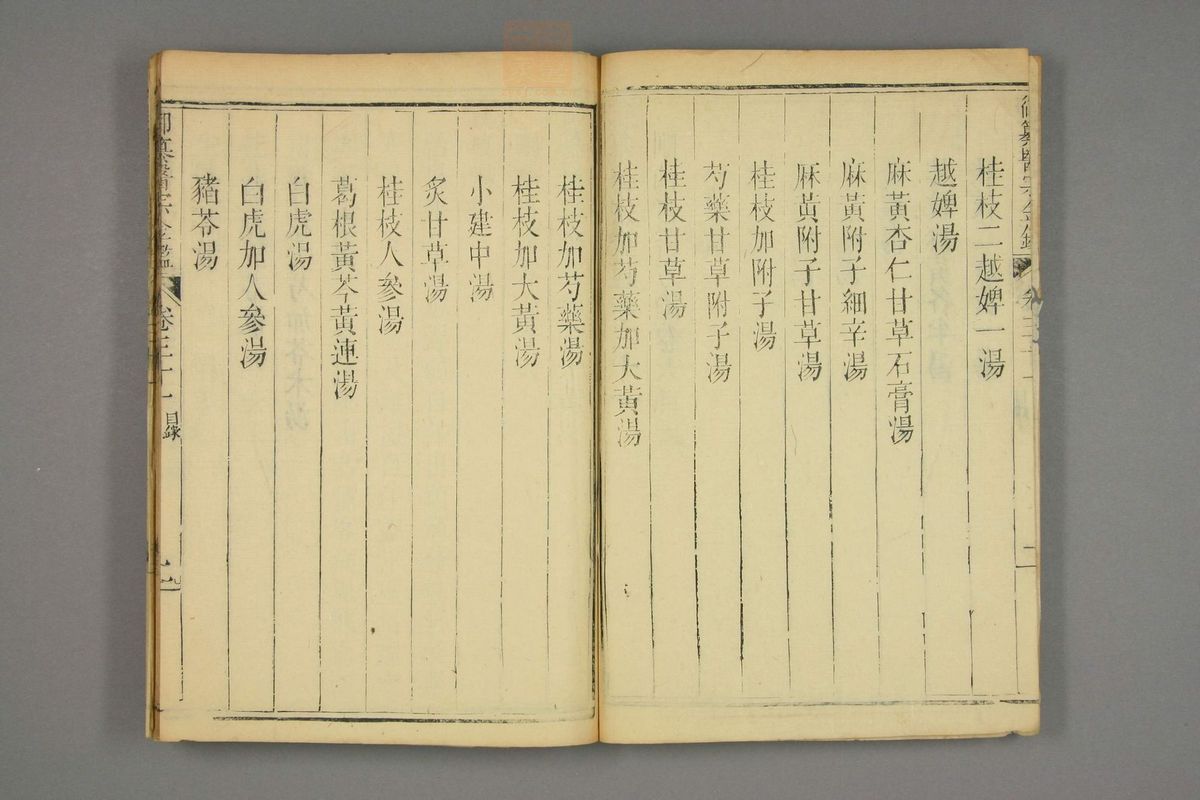 桂枝二越婢一湯
越婢湯
麻黃杏仁甘草石膏湯
麻黃附子細辛湯
麻黃附子甘草湯
桂枝加附子湯
芍藥甘草附子湯
桂枝甘草湯
桂枝加芍藥加大黃湯
桂枝加芍藥湯
桂枝加大黃湯
小建中湯
炙甘草湯
桂枝人參湯
葛根黃芩黃連湯
白虎湯
白虎加人參湯
豬苓湯
御纂醫宗金鑑 卷三十一 目錄